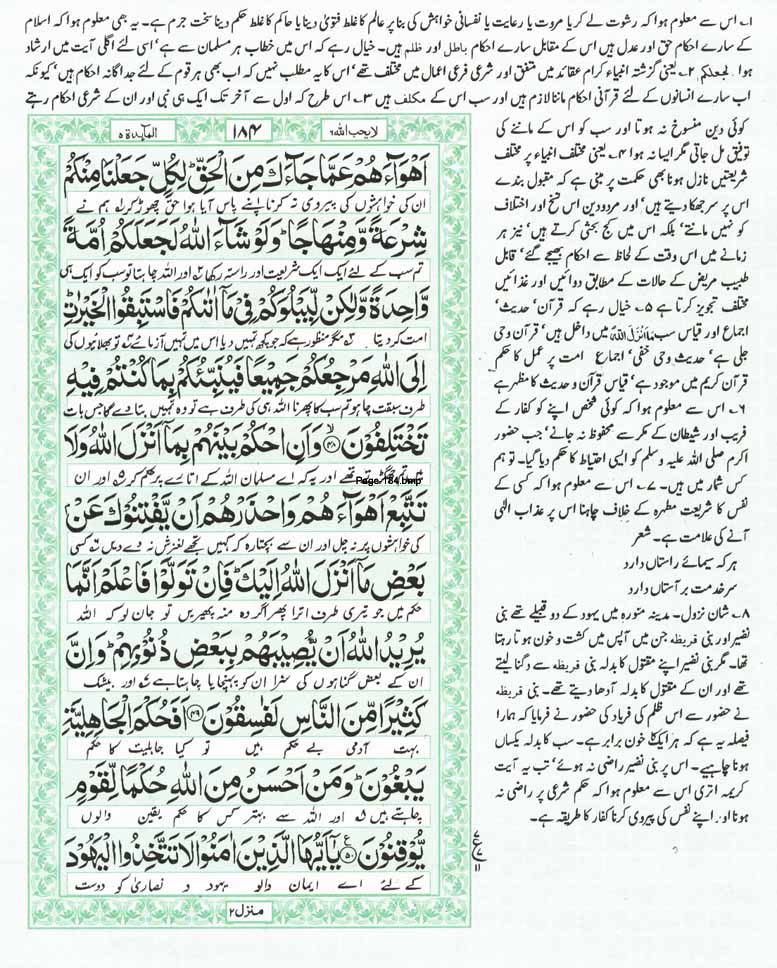 ۱؎ اس سے معلوم ہوا کہ رشوت لے کر یا مروت یا رعایت یا نفسانی خواہش کی بنا پر عالم کا غلط فتویٰ دینا یا حاکم کا غلط حکم دینا سخت جرم ہے۔ یہ بھی معلوم ہوا کہ اسلام
کے سارے احکام حق اور عدل ہیں اس کے مقابل سارے احکام باطل اور ظلم ہیں۔ خیال رہے کہ اس میں خطاب ہر مسلمان سے ہے' اسی لئے اگلی آیت میں ارشاد
ہوا لجعلکم ۲؎ یعنی گزشتہ انبیاء کرام عقائد میں متفق اور شرعی فرعی اعمال میں مختلف تھے' اس کا یہ مطلب نہیں کہ اب بھی ہر قوم کے لئے جداگانہ احکام ہیں' کیونکہ
اب سارے انسانوں کے لئے قرآنی احکام ماننا لازم ہیں اور سب اس کے مکلف ہیں ۳؎ اس طرح کہ اول سے آخر تک ایک ہی نبی اور ان کے شرعی احکام رہتے
کوئی دین منسوخ نہ ہوتا اور سب کو اس کے ماننے کی
توفیق مل جاتی مگر ایسا نہ ہوا ۴؎ یعنی مختلف انبیاء پر مختلف
شریعتیں نازل ہونا بھی حکمت پر مبنی ہے کہ مقبول بندے
اس پر سر جھکا دیتے ہیں' اور مردودین اس نسخ اور اختلاف
کو نہیں مانتے' بلکہ اس میں کج بحثی کرتے ہیں' نیز ہر
زمانے میں اس وقت کے لحاظ سے احکام بھیجے گئے' قابل
طبیب مریض کے حالات کے مطابق دوائیں اور غذائیں
مختلف تجویز کرتا ہے ۵؎ خیال رہے کہ قرآن' حدیث'
اجماع اور قیاس سب مَا اَنْزَلَ اللّٰهُ میں داخل ہیں' قرآن وحی
جلی ہے' حدیث وحی خفی' اجماع امت پر عمل کا حکم
قرآن کریم میں موجود ہے' قیاس قرآن و حدیث کا مظہر ہے
۶؎ اس سے معلوم ہوا کہ کوئی شخص اپنے کو کفار کے
فریب اور شیطان کے مکر سے محفوظ نہ جانے' جب حضور
اکرم صلی اللہ علیہ وسلم کو ایسی احتیاط کا حکم دیا گیا۔ تو ہم
کس شمار میں ہیں۔ ۷؎ اس سے معلوم ہوا کہ کسی کے
نفس کا شریعت مطہرہ کے خلاف چاہنا اس پر عذاب الٰہی
آنے کی علامت ہے۔ شعر
ہر کہ سیمائے راستاں دارد
سر خدمت بر آستاں دارد
۸؎ شان نزول۔ مدینہ منورہ میں یہود کے دو قبیلے تھے بنی
نضیر اور بنی قریظہ جن میں آپس میں کشت و خون ہوتا رہتا
تھا۔ مگر بنی نضیر اپنے مقتول کا بدلہ بنی قریظہ سے دگنا لیتے
تھے اور ان کے مقتول کا بدلہ آدھا دیتے تھے۔ بنی قریظہ
نے حضور سے اس ظلم کی فریاد کی حضور نے فرمایا کہ ہمارا
فیصلہ یہ ہے کہ ہر ایک کا خون برابر ہے۔ سب کا بدلہ یکساں
ہونا چاہیے۔ اس پر بنی نضیر راضی نہ ہوئے' تب یہ آیت
کریمہ اتری اس سے معلوم ہوا کہ حکم شرعی پر راضی نہ
ہونا اور اپنے نفس کی پیروی کرنا کفار کا طریقہ ہے۔
لا يحب الله ٦
۱۸۴
المآئدة ۵
اَهْوَآءَهُمْ عَمَّا جَآءَكَ مِنَ الْحَقِّ ؕ لِكُلٍّ جَعَلْنَا مِنْكُمْ
ان کی خواہشوں کی پیروی نہ کرنا اپنے پاس آیا ہوا حق چھوڑ کر لہ ہم نے
شِرْعَةً وَّمِنْهَاجًا ؕ وَلَوْ شَآءَ اللّٰهُ لَجَعَلَكُمْ اُمَّةً
تم سب کے لئے ایک ایک شریعت اور راستہ رکھا اور اللہ چاہتا تو سب کو ایک ہی
وَّاحِدَةً وَّلٰكِنْ لِّيَبْلُوَكُمْ فِيْ مَاۤ اٰتٰىكُمْ فَاسْتَبِقُوا الْخَيْرٰتِ ؕ
امت کر دیتا مگر منظور ہے کہ جو کچھ تمہیں دیا اس میں تمہیں آزمائے تو بھلائیوں کی
اِلَى اللّٰهِ مَرْجِعُكُمْ جَمِيْعًا فَيُنَبِّئُكُمْ بِمَا كُنْتُمْ فِيْهِ
طرف سبقت چاہو تم سب کا پھرنا اللہ ہی کی طرف ہے تو وہ تمہیں بتا دے گا جس بات
تَخْتَلِفُوْنَ ﴿۴۸﴾ وَاَنِ احْكُمْ بَيْنَهُمْ بِمَاۤ اَنْزَلَ اللّٰهُ وَلَا
میں تم جھگڑتے تھے اور یہ کہ اے مسلمان اللہ کے اتارے پر حکم کر اور ان
Page 184.bmp
تَتَّبِعْ اَهْوَآءَهُمْ وَاحْذَرْهُمْ اَنْ يَّفْتِنُوْكَ عَنْۢ
کی خواہشوں پر نہ چل اور ان سے بچتا رہ کہ کہیں تجھے لغزش نہ دے دیں کسی
بَعْضِ مَاۤ اَنْزَلَ اللّٰهُ اِلَيْكَ ؕ فَاِنْ تَوَلَّوْا فَاعْلَمْ اَنَّمَا
حکم میں جو تیری طرف اترا پھر اگر وہ منہ پھیریں تو جان لو کہ اللہ
يُرِيْدُ اللّٰهُ اَنْ يُّصِيْبَهُمْ بِبَعْضِ ذُنُوْبِهِمْ ؕ وَاِنَّ
ان کے بعض گناہوں کی سزا ان کو پہنچایا چاہتا ہے اور بیشک
كَثِيْرًا مِّنَ النَّاسِ لَفٰسِقُوْنَ ﴿۴۹﴾ اَفَحُكْمَ الْجَاهِلِيَّةِ
بہت آدمی بے حکم ہیں تو کیا جاہلیت کا حکم
يَبْغُوْنَ ؕ وَمَنْ اَحْسَنُ مِنَ اللّٰهِ حُكْمًا لِّقَوْمٍ
چاہتے ہیں اور اللہ سے بہتر کس کا حکم یقین والوں
يُّوْقِنُوْنَ ﴿۵۰﴾ يٰۤاَيُّهَا الَّذِيْنَ اٰمَنُوْا لَا تَتَّخِذُوا الْيَهُوْدَ
کے لئے اے ایمان والو یہود و نصاریٰ کو دوست
منزل ۲